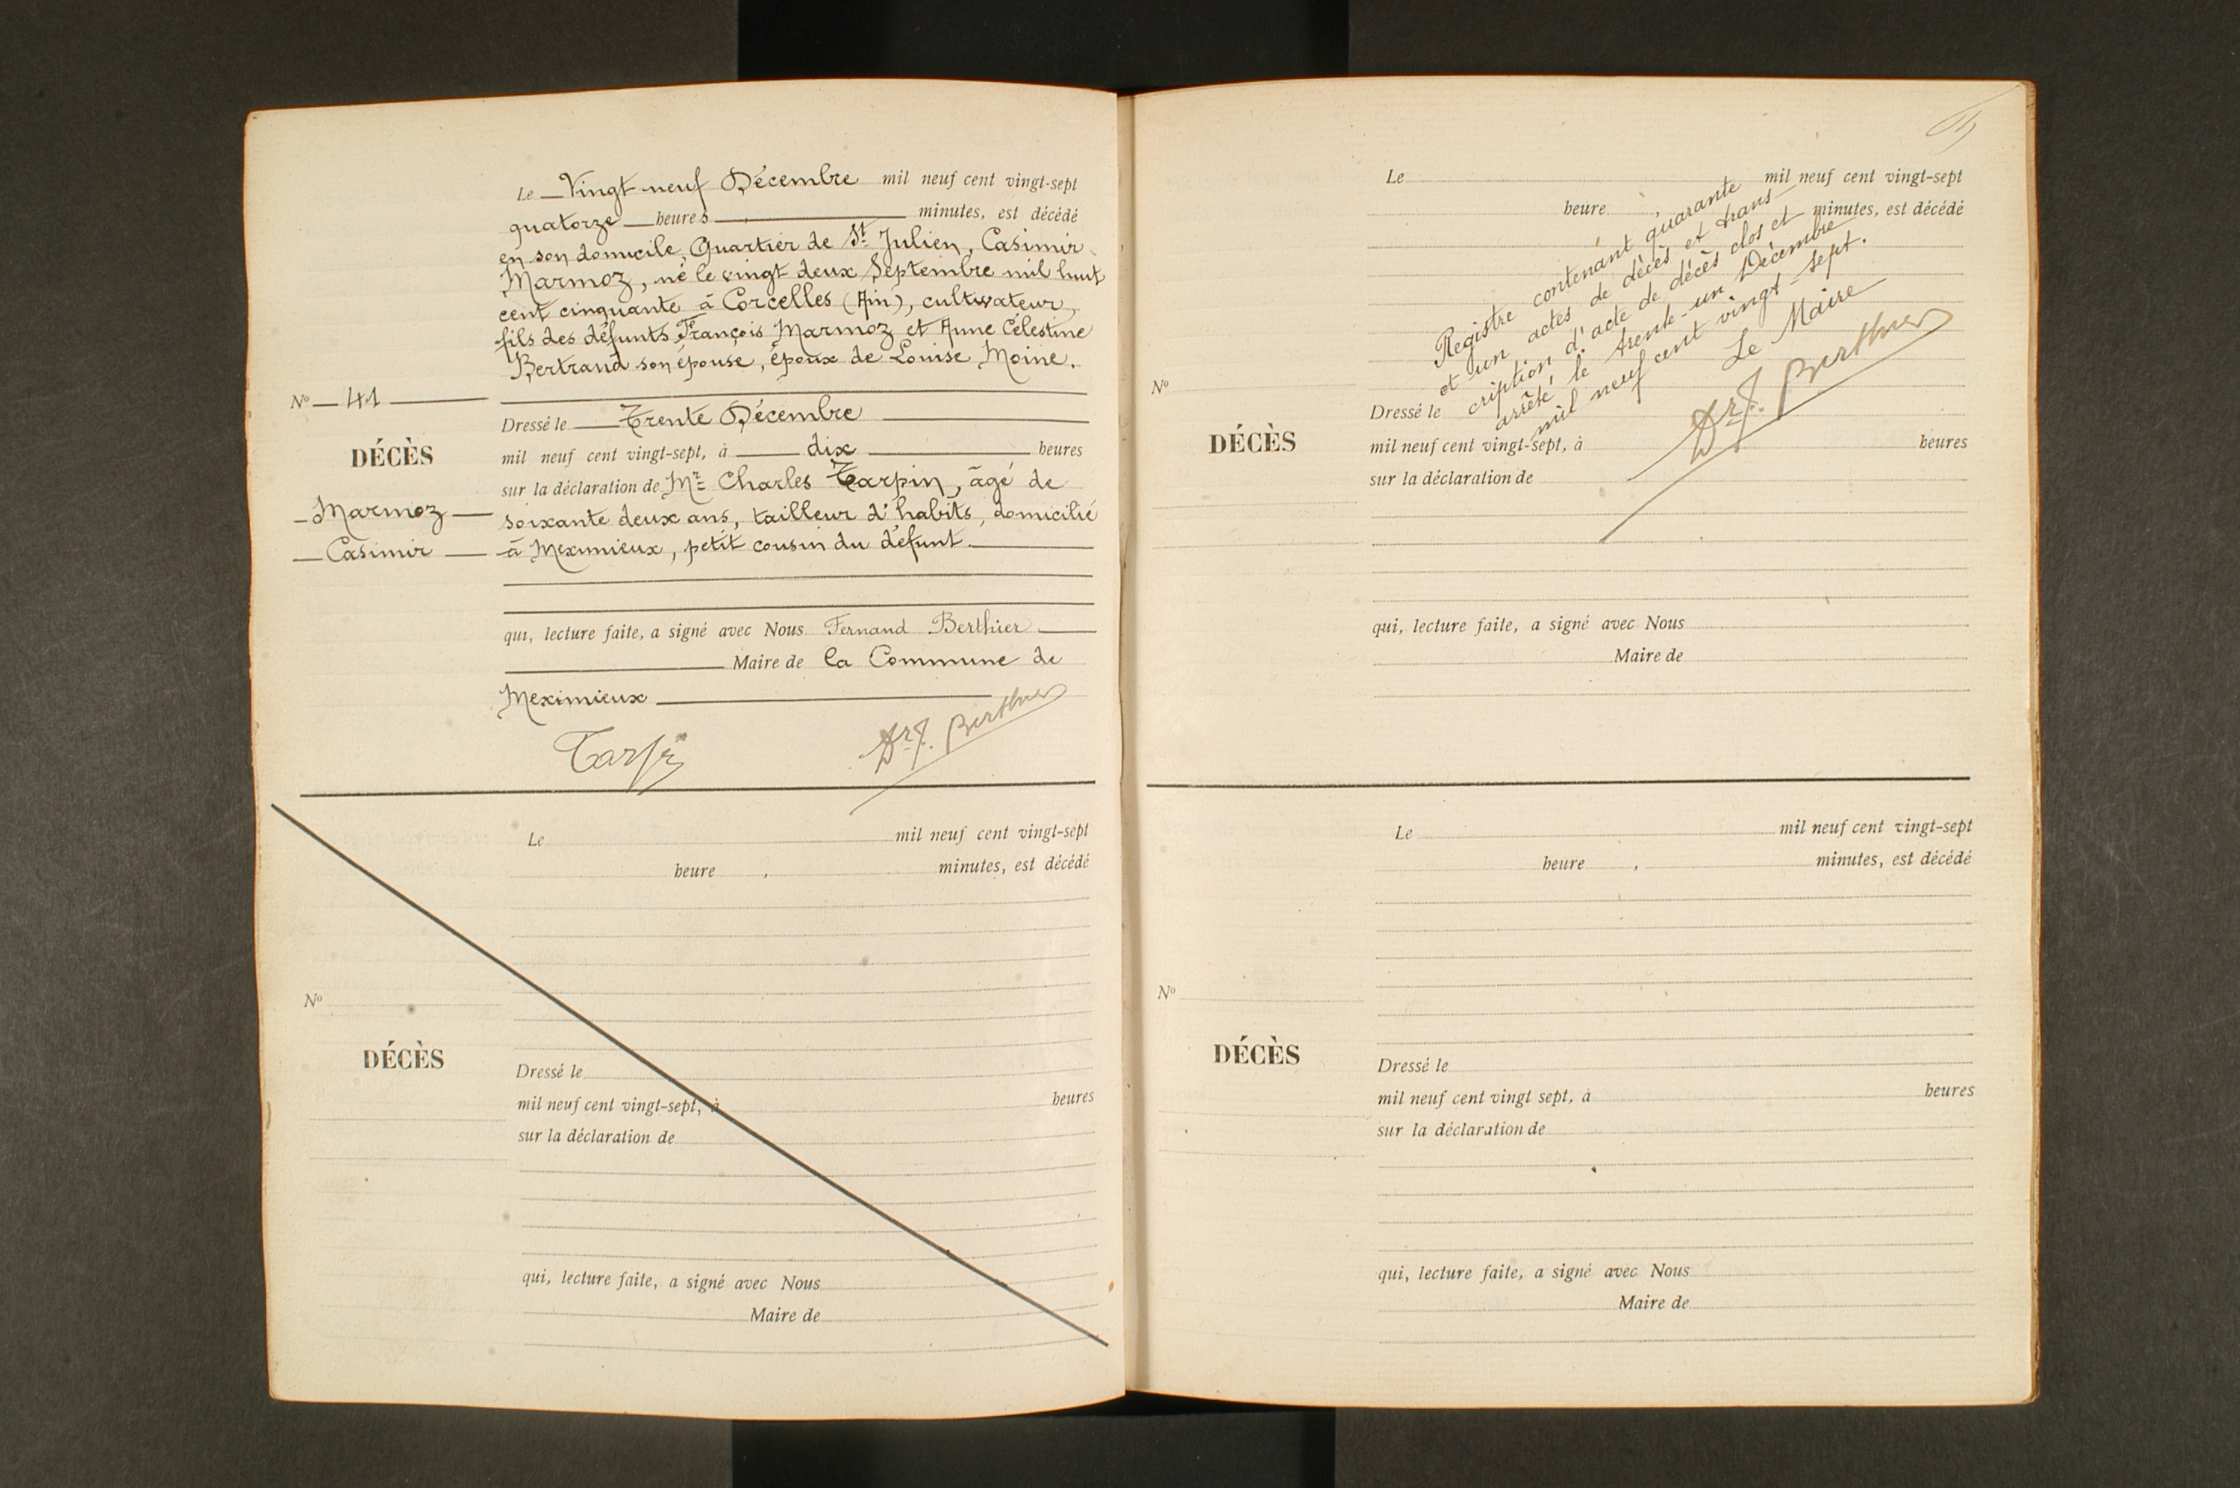 Le Vingt-neuf Décembre mil neuf cent vingt-sept
quatorze heures minutes, est décédé
en son domicile, Quartier de St Julien, Casimir
Marmoz, né le vingt-deux Septembre mil huit
cent cinquante à Corcelles (Ain), cultivateur,
fils des défunts François Marmoz et Anne Célestine
Bertrand son épouse, époux de Louise Moine.
No 41
DÉCÈS
Marmoz
Casimir
Dressé le Trente Décembre
mil neuf cent vingt-sept, à dix heures
sur la déclaration de Mr Charles Tarpin, âgé de
soixante deux ans, tailleur d'habits, domicilié
à Meximieux, petit cousin du défunt
qui, lecture faite, a signé avec Nous Fernand Berthier
Maire de la Commune de
Meximieux
Tarpin Dr F. Berthier
Le mil neuf cent vingt-sept
heure , minutes, est décédé
No
DÉCÈS
Dressé le
mil neuf cent vingt-sept, à heures
sur la déclaration de
qui, lecture faite, a signé avec Nous
Maire de
Le mil neuf cent vingt-sept
heure , minutes, est décédé
Registre contenant quarante
et un actes de décès et trans
cription d'acte de décès clos et
arrêté le trente-un Décembre
mil neuf cent vingt-sept.
Le Maire
Dr F. Berthier
No
DÉCÈS
Dressé le
mil neuf cent vingt-sept, à heures
sur la déclaration de
qui, lecture faite, a signé avec Nous
Maire de
Le mil neuf cent vingt-sept
heure , minutes, est décédé
No
DÉCÈS
Dressé le
mil neuf cent vingt sept, à heures
sur la déclaration de
qui, lecture faite, a signé avec Nous
Maire de